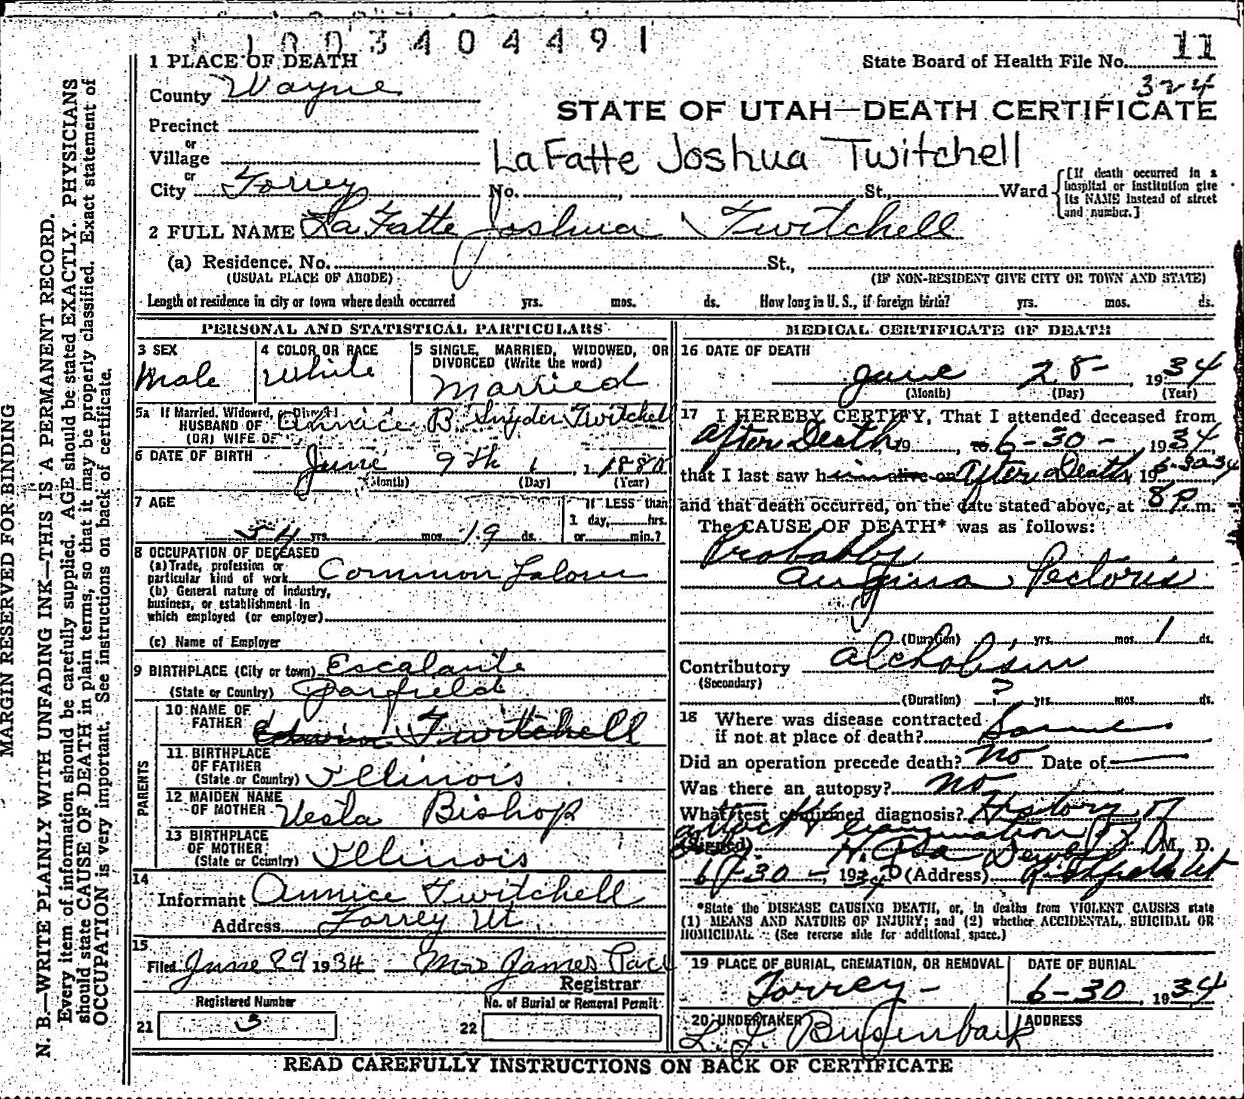 1003404491
1 PLACE OF DEATH
State Board of Health File No. 11
324
County Wayne
STATE OF UTAH—DEATH CERTIFICATE
Precinct
or
Village
LaFatte Joshua Twitchell
or
City Torrey No. St., Ward
[If death occurred in a hospital or institution give its NAME instead of street and number.]
2 FULL NAME LaFatte Joshua Twitchell
(a) Residence. No. St.,
(USUAL PLACE OF ABODE) (IF NON-RESIDENT GIVE CITY OR TOWN AND STATE)
Length of residence in city or town where death occurred yrs. mos. ds. How long in U. S., if foreign birth? yrs. mos. ds.
PERSONAL AND STATISTICAL PARTICULARS
3 SEX
Male
4 COLOR OR RACE
White
5 SINGLE, MARRIED, WIDOWED, OR
DIVORCED (Write the word)
Married
5a If Married, Widowed, or Divorced
HUSBAND OF Annice B. Snyder Twitchell
(OR) WIFE OF
6 DATE OF BIRTH June 9th 1880
(Month) (Day) (Year)
7 AGE
54 yrs. mos. 19 ds.
If LESS than
1 day, hrs.
or min.?
8 OCCUPATION OF DECEASED
(a) Trade, profession or
particular kind of work Common Labour
(b) General nature of industry,
business, or establishment in
which employed (or employer)
(c) Name of Employer
9 BIRTHPLACE (City or town) Escalante
(State or Country) Garfield
PARENTS
10 NAME OF
FATHER Edwin Twitchell
11 BIRTHPLACE
OF FATHER
(State or Country) Illinois
12 MAIDEN NAME
OF MOTHER Vesta Bishop
13 BIRTHPLACE
OF MOTHER
(State or Country) Illinois
14
Informant Annice Twitchell
Address Torrey Ut.
15
Filed June 29 1934 Mrs James Pace
Registrar
Registered Number
21 3
No. of Burial or Removal Permit
22
MEDICAL CERTIFICATE OF DEATH
16 DATE OF DEATH
June 28- 1934
(Month) (Day) (Year)
17 I HEREBY CERTIFY, That I attended deceased from
After Death, 19 to 6-30- 1934
that I last saw him alive on After Death, 19 6-30-34
and that death occurred, on the date stated above, at 8 P. m.
The CAUSE OF DEATH* was as follows:
Probably
Angina Pectoris
(Duration) yrs. mos. 1 ds.
Contributory Alcholism
(Secondary)
(Duration) ? yrs. mos. ds.
18 Where was disease contracted
if not at place of death? Same
Did an operation precede death? No Date of
Was there an autopsy? No
What test confirmed diagnosis? History of
attack & examination
(Signed) H. Asa Dewey M. D.
6-30-, 1934 (Address) Richfield Ut
*State the DISEASE CAUSING DEATH, or, in deaths from VIOLENT CAUSES state
(1) MEANS AND NATURE OF INJURY; and (2) whether ACCIDENTAL, SUICIDAL OR
HOMICIDAL. (See reverse side for additional space.)
19 PLACE OF BURIAL, CREMATION, OR REMOVAL
Torrey-
DATE OF BURIAL
6-30, 1934
20 UNDERTAKER
L. J. Busenbark
ADDRESS
READ CAREFULLY INSTRUCTIONS ON BACK OF CERTIFICATE
MARGIN RESERVED FOR BINDING
N. B.—WRITE PLAINLY WITH UNFADING INK—THIS IS A PERMANENT RECORD.
Every item of information should be carefully supplied. AGE should be stated EXACTLY. PHYSICIANS
should state CAUSE OF DEATH in plain terms, so that it may be properly classified. Exact statement of
OCCUPATION is very important. See instructions on back of certificate.